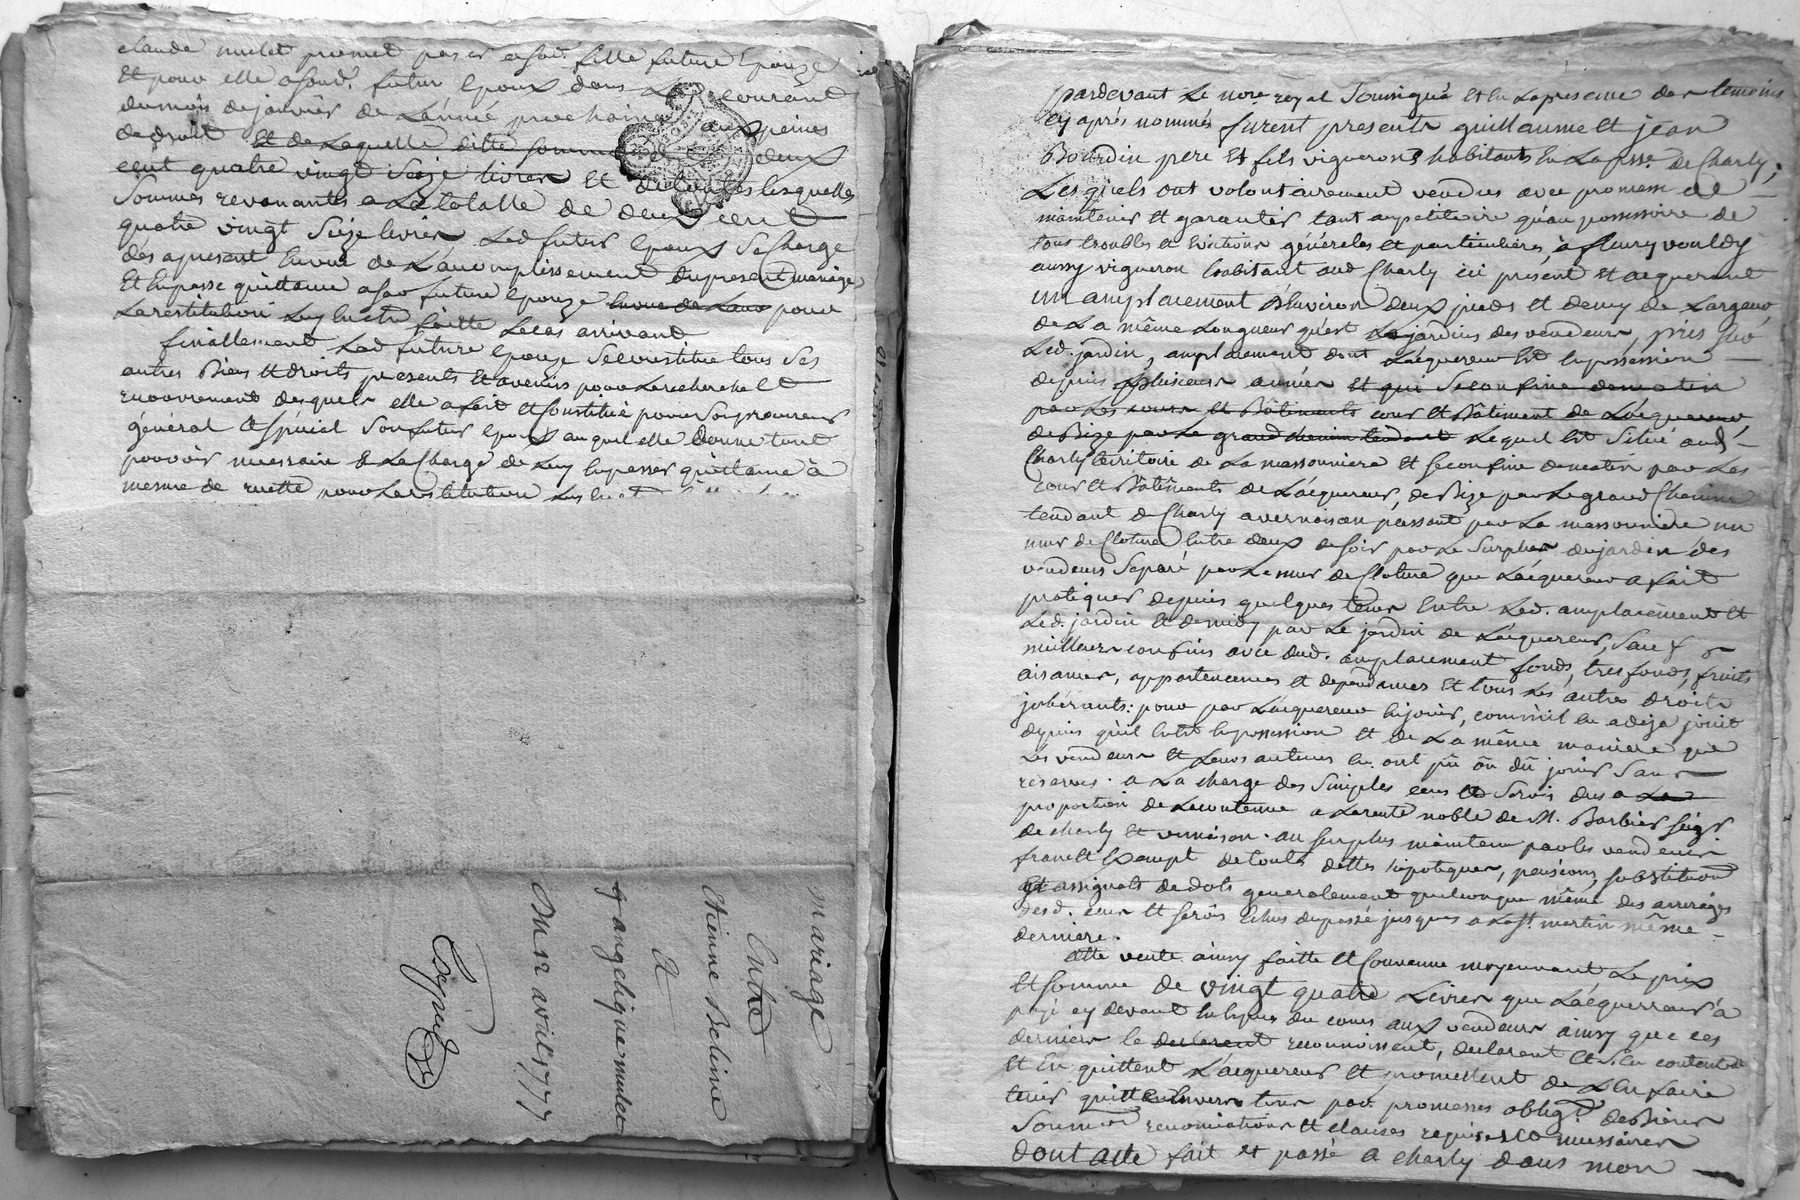 claude mulet promet payer a sad. fille future Epouze
Et pour elle a sond. futur Epoux dans Le courant
du mois de janvier de L'année prochaine aux peines
de droit Et de Laquelle ditte somme deux
cent quatre vingt Seize livres Et lesquelles
Sommes revenantes a La totalle de deux cent
quatre vingt Seize livres Led futur Epoux Se Charge
dès apresent En vue de L'accomplissement du present mariage
Et En passe quittance a sad future Epouze pour
La restitution Luy En être faitte Le cas arrivant
finallement Lad future Epouze Se constitue tous Ses
autres Biens Et droits presents Et avenirs pour La recherche Et
recouvrement desquels elle a fait Et Constitué pour Son procureur
général Et Spécial Son futur Epoux auquel elle donne tout
pouvoir necessaire a La Charge de Luy En passer quittance à
mesme de recette pour La restitution Luy En et
mariage
Entre
Etienne Beluze
Et
angelique mulet
Du 12 avril 1777
pardevant Le nore royal Soussigné Et En La presence des temoins
cy après nommés furent presents guillaume Et jean
Bourdin pere Et fils vignerons habitants En La psse de Charly,
Lesquels ont volontairement vendus avec promesse de
maintenir Et garantir tant au petitoire qu'au possessoire de
tous troubles Et Evictions généreles et particulières, à fleury vouldy
aussy vigneron habitant aud Charly ici present Et acquerant
un amplacement d'Environ deux pieds Et demy de Largeur
de La même Longueur qu'est Le jardin des vendeurs, pris Sur
Led. jardin, amplacement dont L'acquereur Est En possession
depuis plusieurs années et qui Se confine de matin
par Les cours Et Bâtiments cour Et Bâtiment de L'acquereur
de Bize par Le grand chemin tendant Lequel Est Situé aud
Charly territoire de La massonniere Et Se confine de matin par Les
cours Et Bâtiments de L'acquereur, de Bize par Le grand Chemin
tendant de Charly a vernaison passant par La massonniere un
mur de Cloture Entre deux de soir par Le Surplus du jardin des
vendeurs Separé par Le mur de Cloture que L'acquereur a fait
pratiquer depuis quelques tems Entre Led. amplacement Et
Led. jardin Et de midy par Le jardin de L'acquereur, Sauf
meilleurs confins avec dud. amplacement fonds, tres fonds, fruits
aisances, appartenances et dependances Et tous Les autres droits
inhérants: pour par L'acquereur En jouir, comm'il En a déja jouit
depuis qu'il En Est En possession Et de La même maniere que
Les vendeurs Et Leurs auteurs En ont pû ou dû jouir Sans
reserves. a La charge des Simples cens Et Servis dus a La
proportion de La contenue a La rente noble de M. Barbier Seigr
de charly Et vernaison. au surplus maintenu par les vendeurs
franc Et Exempt de touts dettes hipoteques, pensions, substitution
Et assignats de dots generalement quelconque même des arrerages
desd. cens Et servis Echus du passé jusques a La St. martin même
derniere.
Cette vente ainsy faitte Et Convenue moyennant Le prix
Et Somme de vingt quatre Livres que L'acquereur à
payé cy devant En Especes du cours aux vendeurs ainsy que ces
derniers le declarent reconnoissent, declarent Et s'En contentent
Et En quittent L'acquereur Et promettent de L'En faire
tenir quitte Envers tous par promesses oblign de Biens
Soumon renonciations Et clauses requises Et necessaires
dont acte fait et passé a charly dans mon